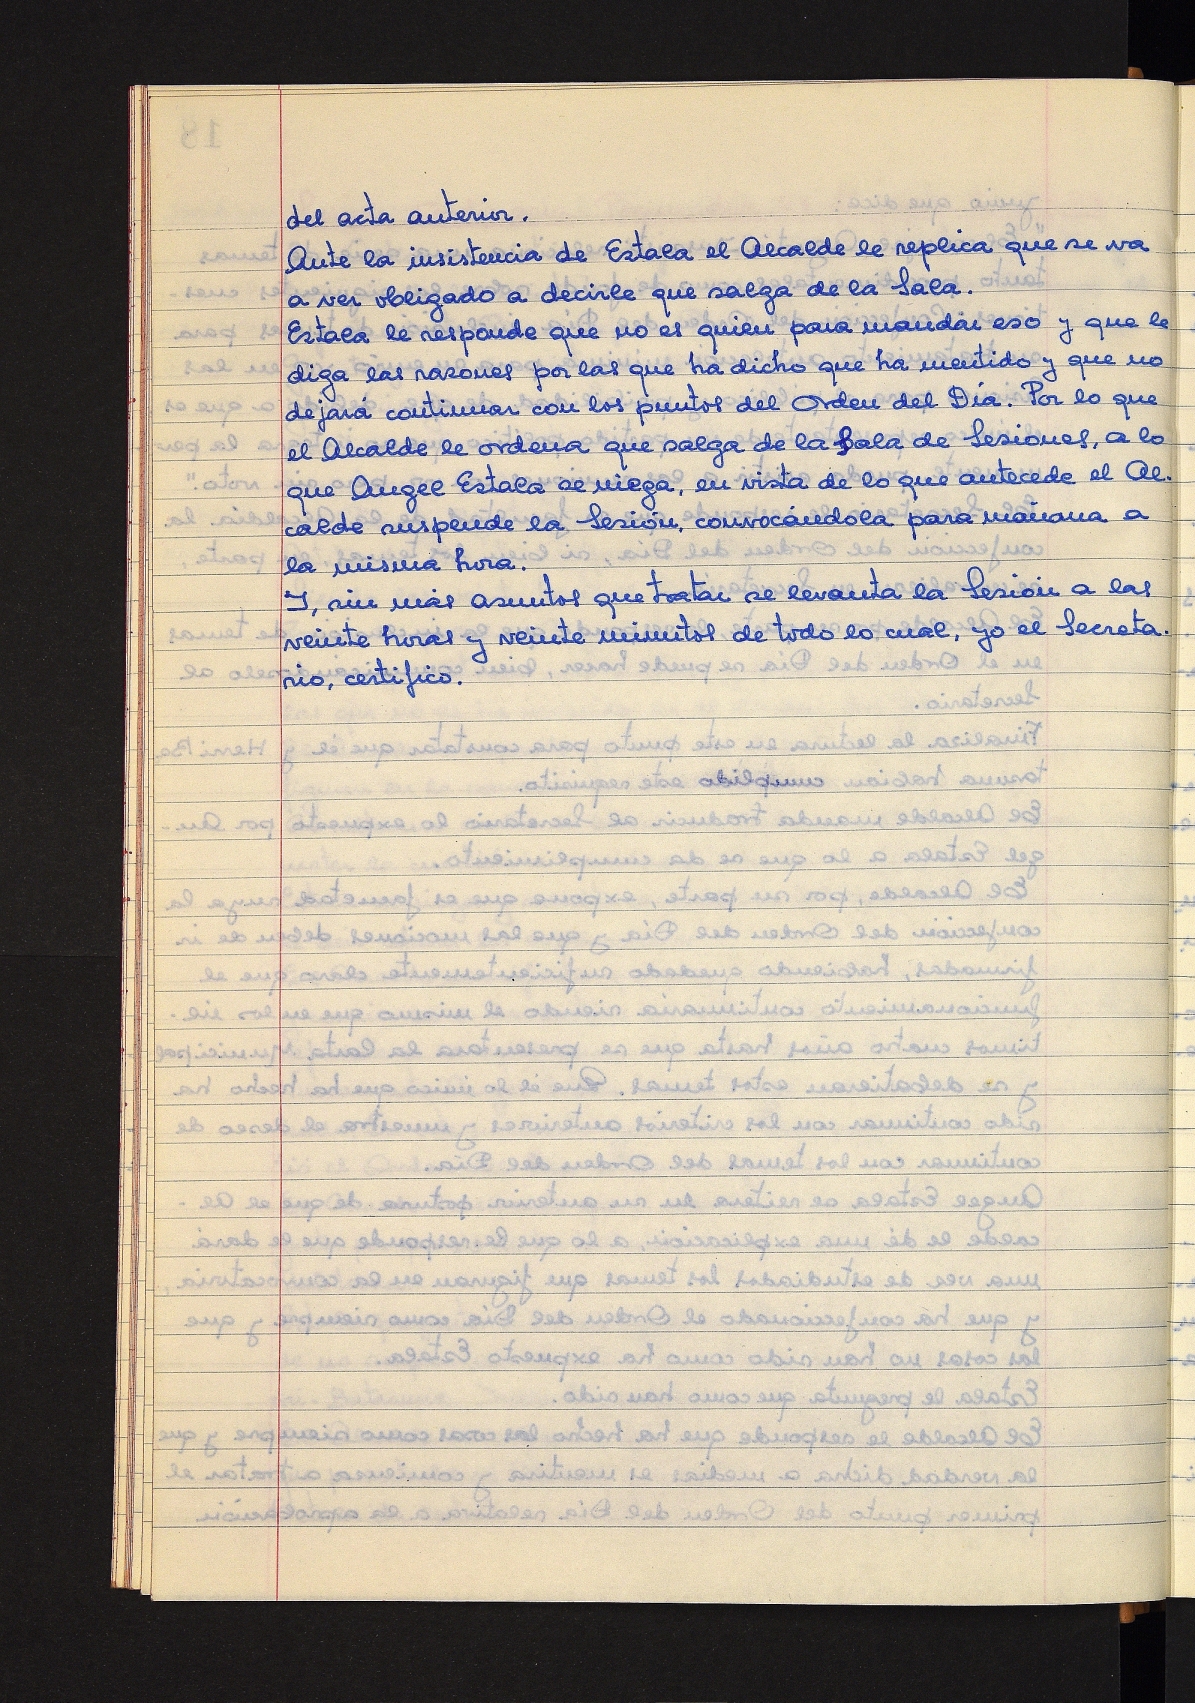 del acta anterior.
Ante la insistencia de Estala el Alcalde le replica que se va
a ver obligado a decirle que salga de la Sala.
Estala le responde que no es quien para mandar eso y que le
diga las razones por las que ha dicho que ha mentido y que no
dejará continuar con los puntos del Orden del Día. Por lo que
el Alcalde le ordena que salga de la Sala de Sesiones, a lo
que Angel Estala se niega, en vista de lo que antecede el Al-
calde suspende la Sesión, convocándola para mañana a
la misma hora.
Y, sin más asuntos que tratar se levanta la Sesión a las
veinte horas y veinte minutos de todo lo cual, yo el Secreta-
rio, certifico.